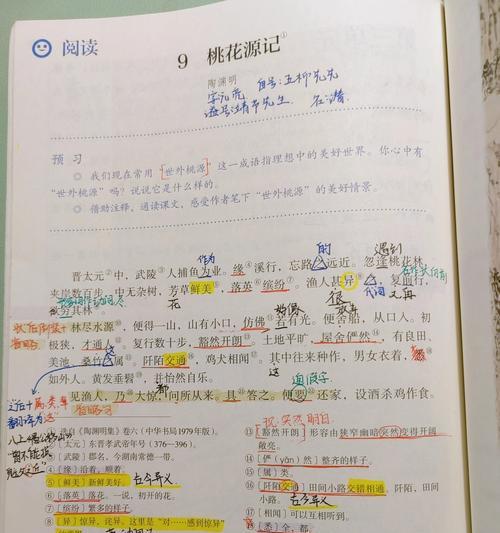 阅读
9 桃花源记①
陶渊明 自号:五柳先生
字元亮 名:潜
谥号:靖节先生
预习
◎ 我们现在常用“世外桃源”这一成语指理想中的美好世界。你心中有
“世外桃源”吗?说说它是什么样的。
◎ 借助注释,通读课文,感受作者笔下“世外桃源”的美好情景。
作为 的 遇到
晋太元②中,武陵③人捕鱼为业。缘④溪行,忘路之远近。忽逢桃花林,
夹岸数百步,中无杂树,芳草鲜美⑤,落英⑥缤纷⑦。渔人甚异⑧之,复前行,
花 很 代词 又,再
欲穷其林。
好像
林尽水源,便得一山,山有小口,仿佛若有光。便舍船,从口入。初
极狭,才通人。复行数十步,豁然开朗。土地平旷,屋舍俨然,有良田、
这
美池、桑竹之属。阡陌交通,鸡犬相闻。其中往来种作,男女衣着,悉
如外人。黄发垂髫,并怡然自乐。
这 都 通假字
见渔人,乃大惊,问所从来。具答之。便要还家,设酒杀鸡作食。
选自《陶渊明集》卷六(中华书局1979年版)。
太元〕东晋孝武帝年号(376—396)。
武陵〕郡名,今湖南常德一带。
④〔缘〕沿着,顺着。
⑤〔鲜美〕新鲜美好。 古今异义
⑥〔落英〕落花。一说,初开的花。
⑦〔缤纷〕繁多的样子。
⑧〔异〕惊异,诧异。这里是“对……感到惊异”
⑬〔豁然开朗〕形容由狭窄幽暗突然变得开阔
敞亮。
⑭〔俨(yǎn)然〕整齐的样子。
⑮〔属〕类。
⑯〔阡陌交通〕田间小路交错相通。阡陌,田间
小路。 古今异义
⑰〔相闻〕可以互相听到。
⑱〔悉〕全,都。